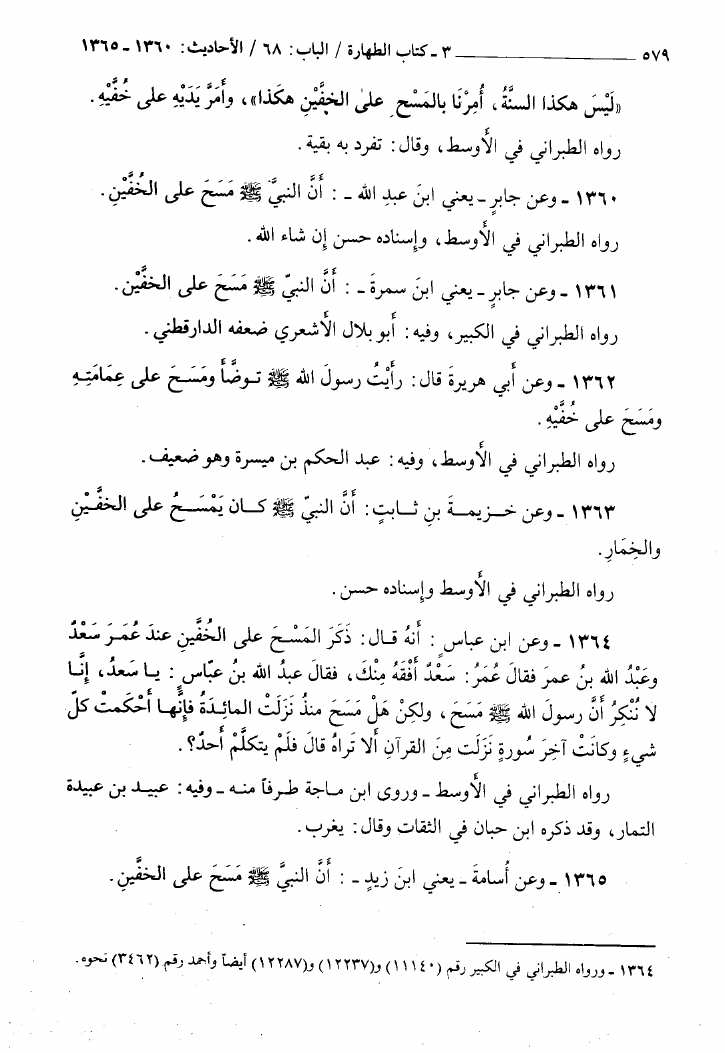 ٥٧٩ ــــــــــــــــــــــــــــــ ٣ ـ كتاب الطهارة / الباب: ٦٨ / الأحاديث: ١٣٦٠ ـ ١٣٦٥
«لَيْسَ هكذا السنَّةُ، أُمِرْنَا بالمَسْحِ على الخفَّيْنِ هكَذا»، وأَمَرَّ يَدَيْهِ على خُفَّيْهِ.
رواه الطبراني في الأوسط، وقال: تفرد به بقية.
١٣٦٠ ـ وعن جابرٍ ـ يعني ابنَ عبدِ الله ـ: أَنَّ النبيَّ ﷺ مَسَحَ على الخُفَّيْنِ.
رواه الطبراني في الأوسط، وإسناده حسن إن شاء الله.
١٣٦١ ـ وعن جابرٍ ـ يعني ابنَ سمرةَ ـ: أَنَّ النبيّ ﷺ مَسَحَ على الخفَّيْنِ.
رواه الطبراني في الكبير، وفيه: أبو بلال الأشعري ضعفه الدارقطني.
١٣٦٢ ـ وعن أبي هريرةَ قال: رأَيْتُ رسولَ الله ﷺ توضَّأَ ومَسَحَ على عِمَامَتِهِ
ومَسَحَ على خُفَّيْهِ.
رواه الطبراني في الأوسط، وفيه: عبد الحكم بن ميسرة وهو ضعيف.
١٣٦٣ ـ وعن خزيمةَ بنِ ثابتٍ: أَنَّ النبيّ ﷺ كان يَمْسَحُ على الخفَّيْنِ
والخِمَارِ.
رواه الطبراني في الأوسط وإسناده حسن.
١٣٦٤ ـ وعن ابن عباسٍ: أَنهُ قال: ذَكَرَ المَسْحَ على الخُفَّينِ عندَ عُمَرَ سَعْدٌ
وعَبْدُ الله بنُ عمرَ فقالَ عُمَرُ: سَعْدٌ أَفْقَهُ مِنْكَ، فقالَ عبدُ الله بنُ عبّاسٍ: يا سَعدُ، إنَّا
لا نُنْكِرُ أَنَّ رسولَ الله ﷺ مَسَحَ، ولكِنْ هَلْ مَسَحَ منذُ نَزَلَتْ المائِدَةُ فإنَّها أَحْكَمتْ كلَّ
شيءٍ وكانَتْ آخِرَ سُورةٍ نَزَلَت مِنَ القرآنِ أَلا تَراهُ قالَ فلَمْ يتكلَّمْ أَحدٌ؟.
رواه الطبراني في الأوسط ـ وروى ابن ماجة طرفاً منه ـ وفيه: عبيد بن عبيدة
التمار، وقد ذكره ابن حبان في الثقات وقال: يغرب.
١٣٦٥ ـ وعن أُسامةَ ـ يعني ابنَ زيدٍ ـ: أَنَّ النبيَّ ﷺ مَسَحَ على الخفَّينِ.
١٣٦٤ ـ ورواه الطبراني في الكبير رقم (١١١٤٠) و(١٢٢٣٧) و(١٢٢٨٧) أيضاً وأحمد رقم (٣٤٦٢) نحوه.